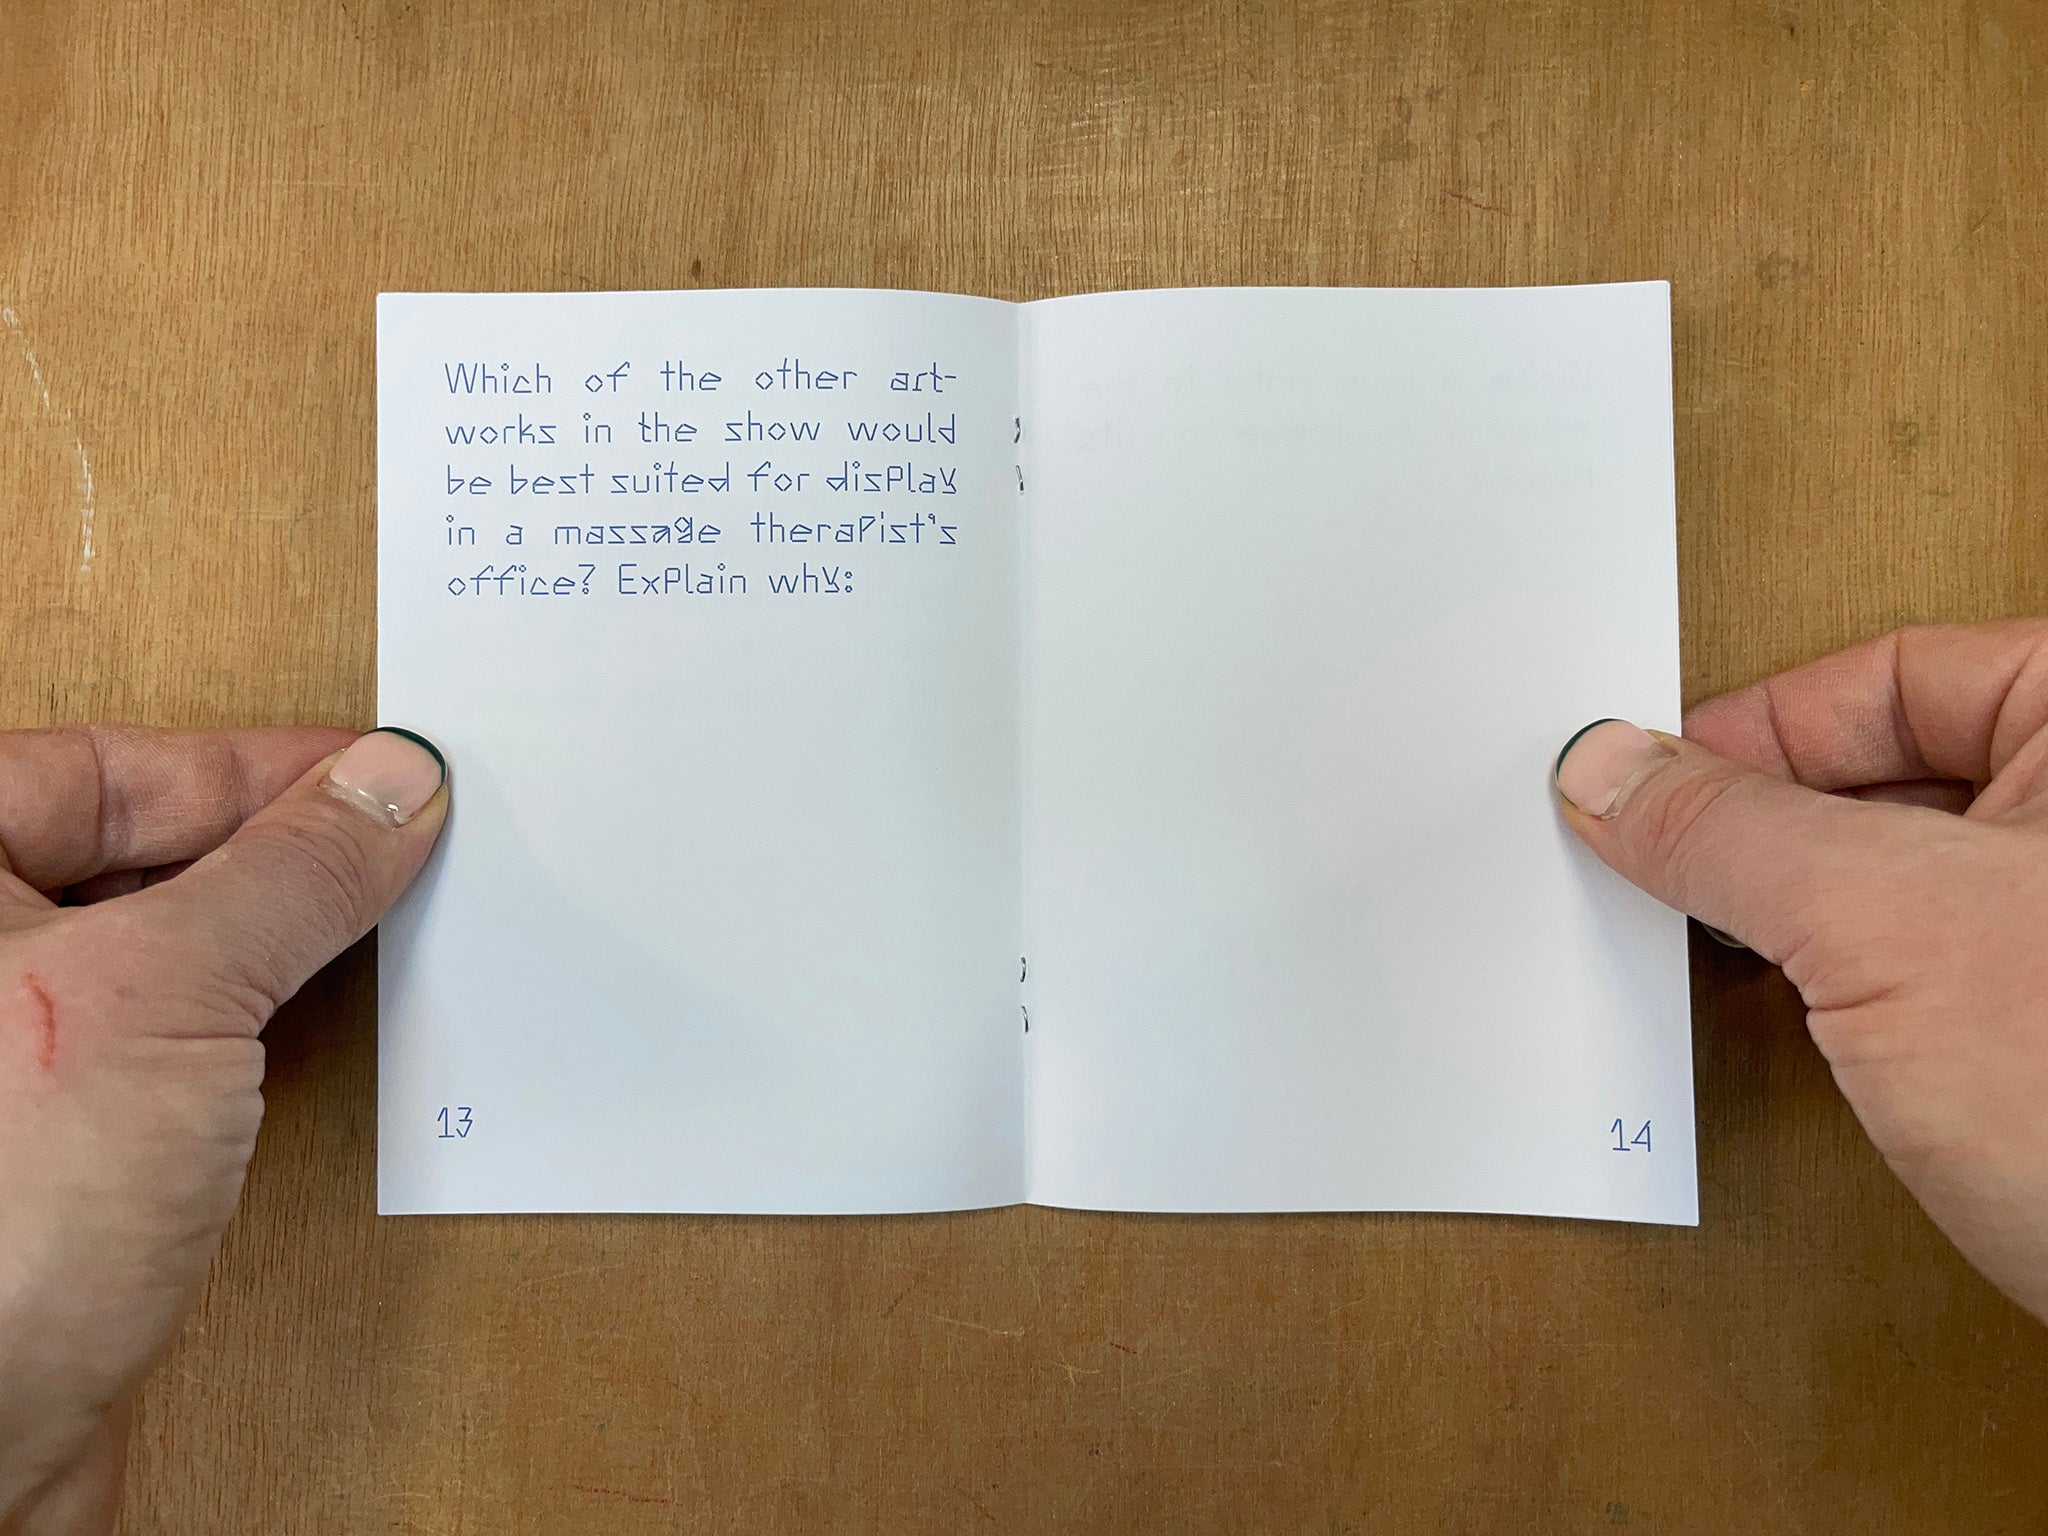 Which of the other art-
works in the show would
be best suited for display
in a massage therapist's
office? Explain why:
13
14